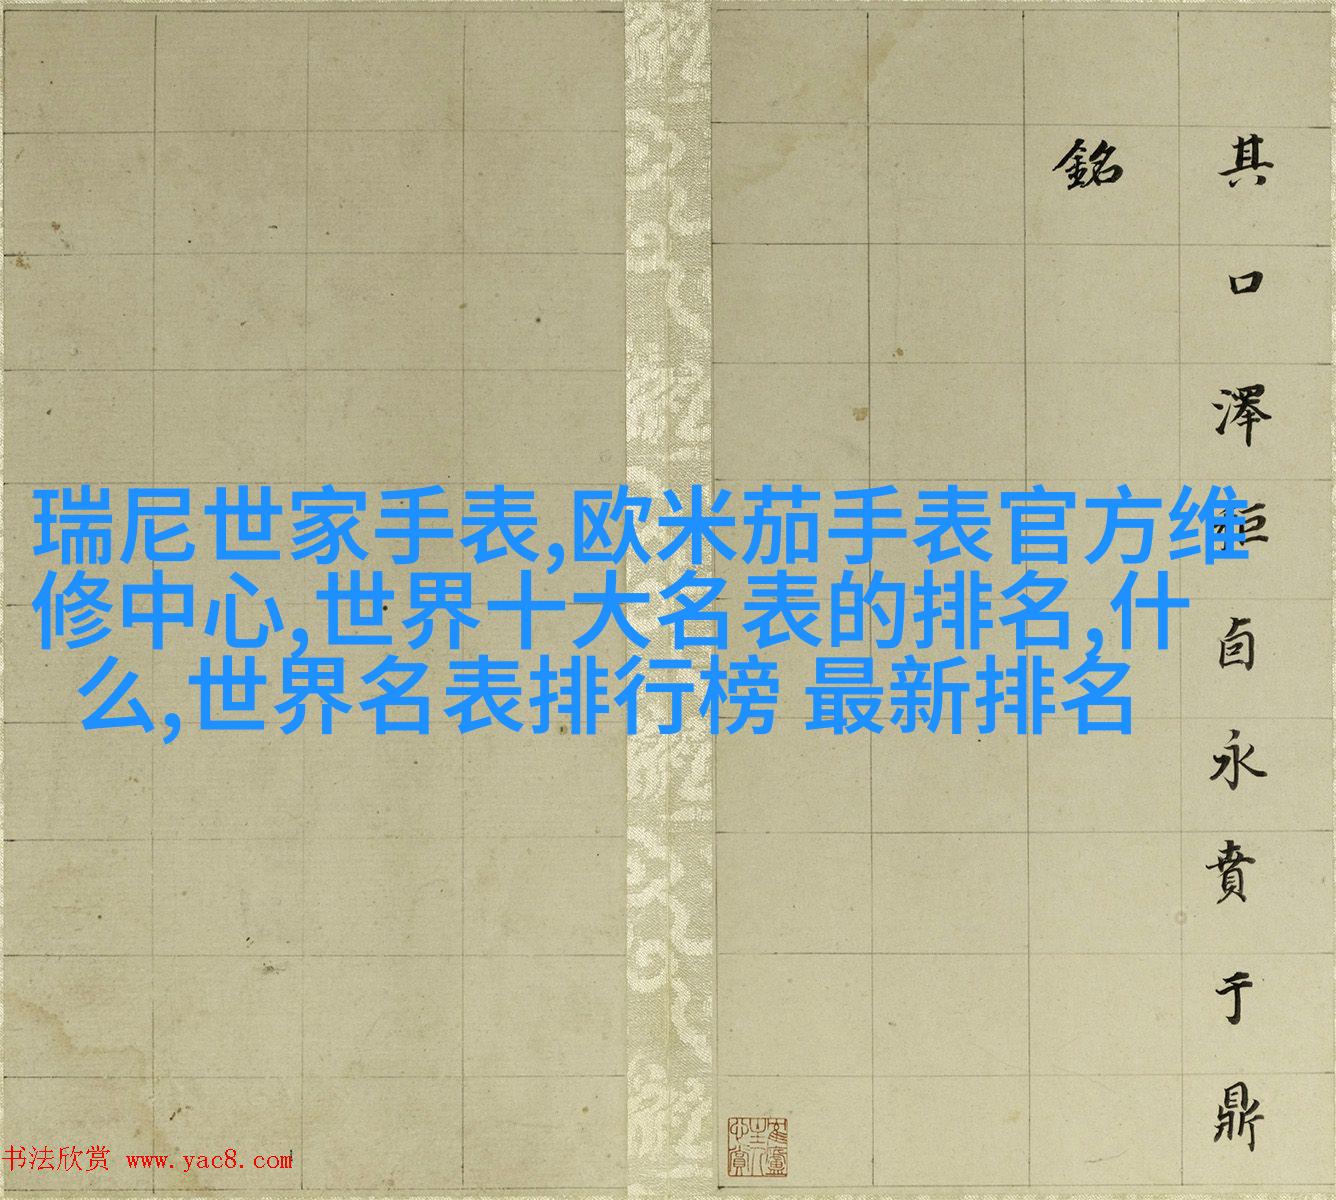 其口澤秬卣永賁于鼎
銘
瑞尼世家手表,欧米茄手表官方维
修中心,世界十大名表的排名,什
么,世界名表排行榜 最新排名
书法欣赏 www.yac8.com